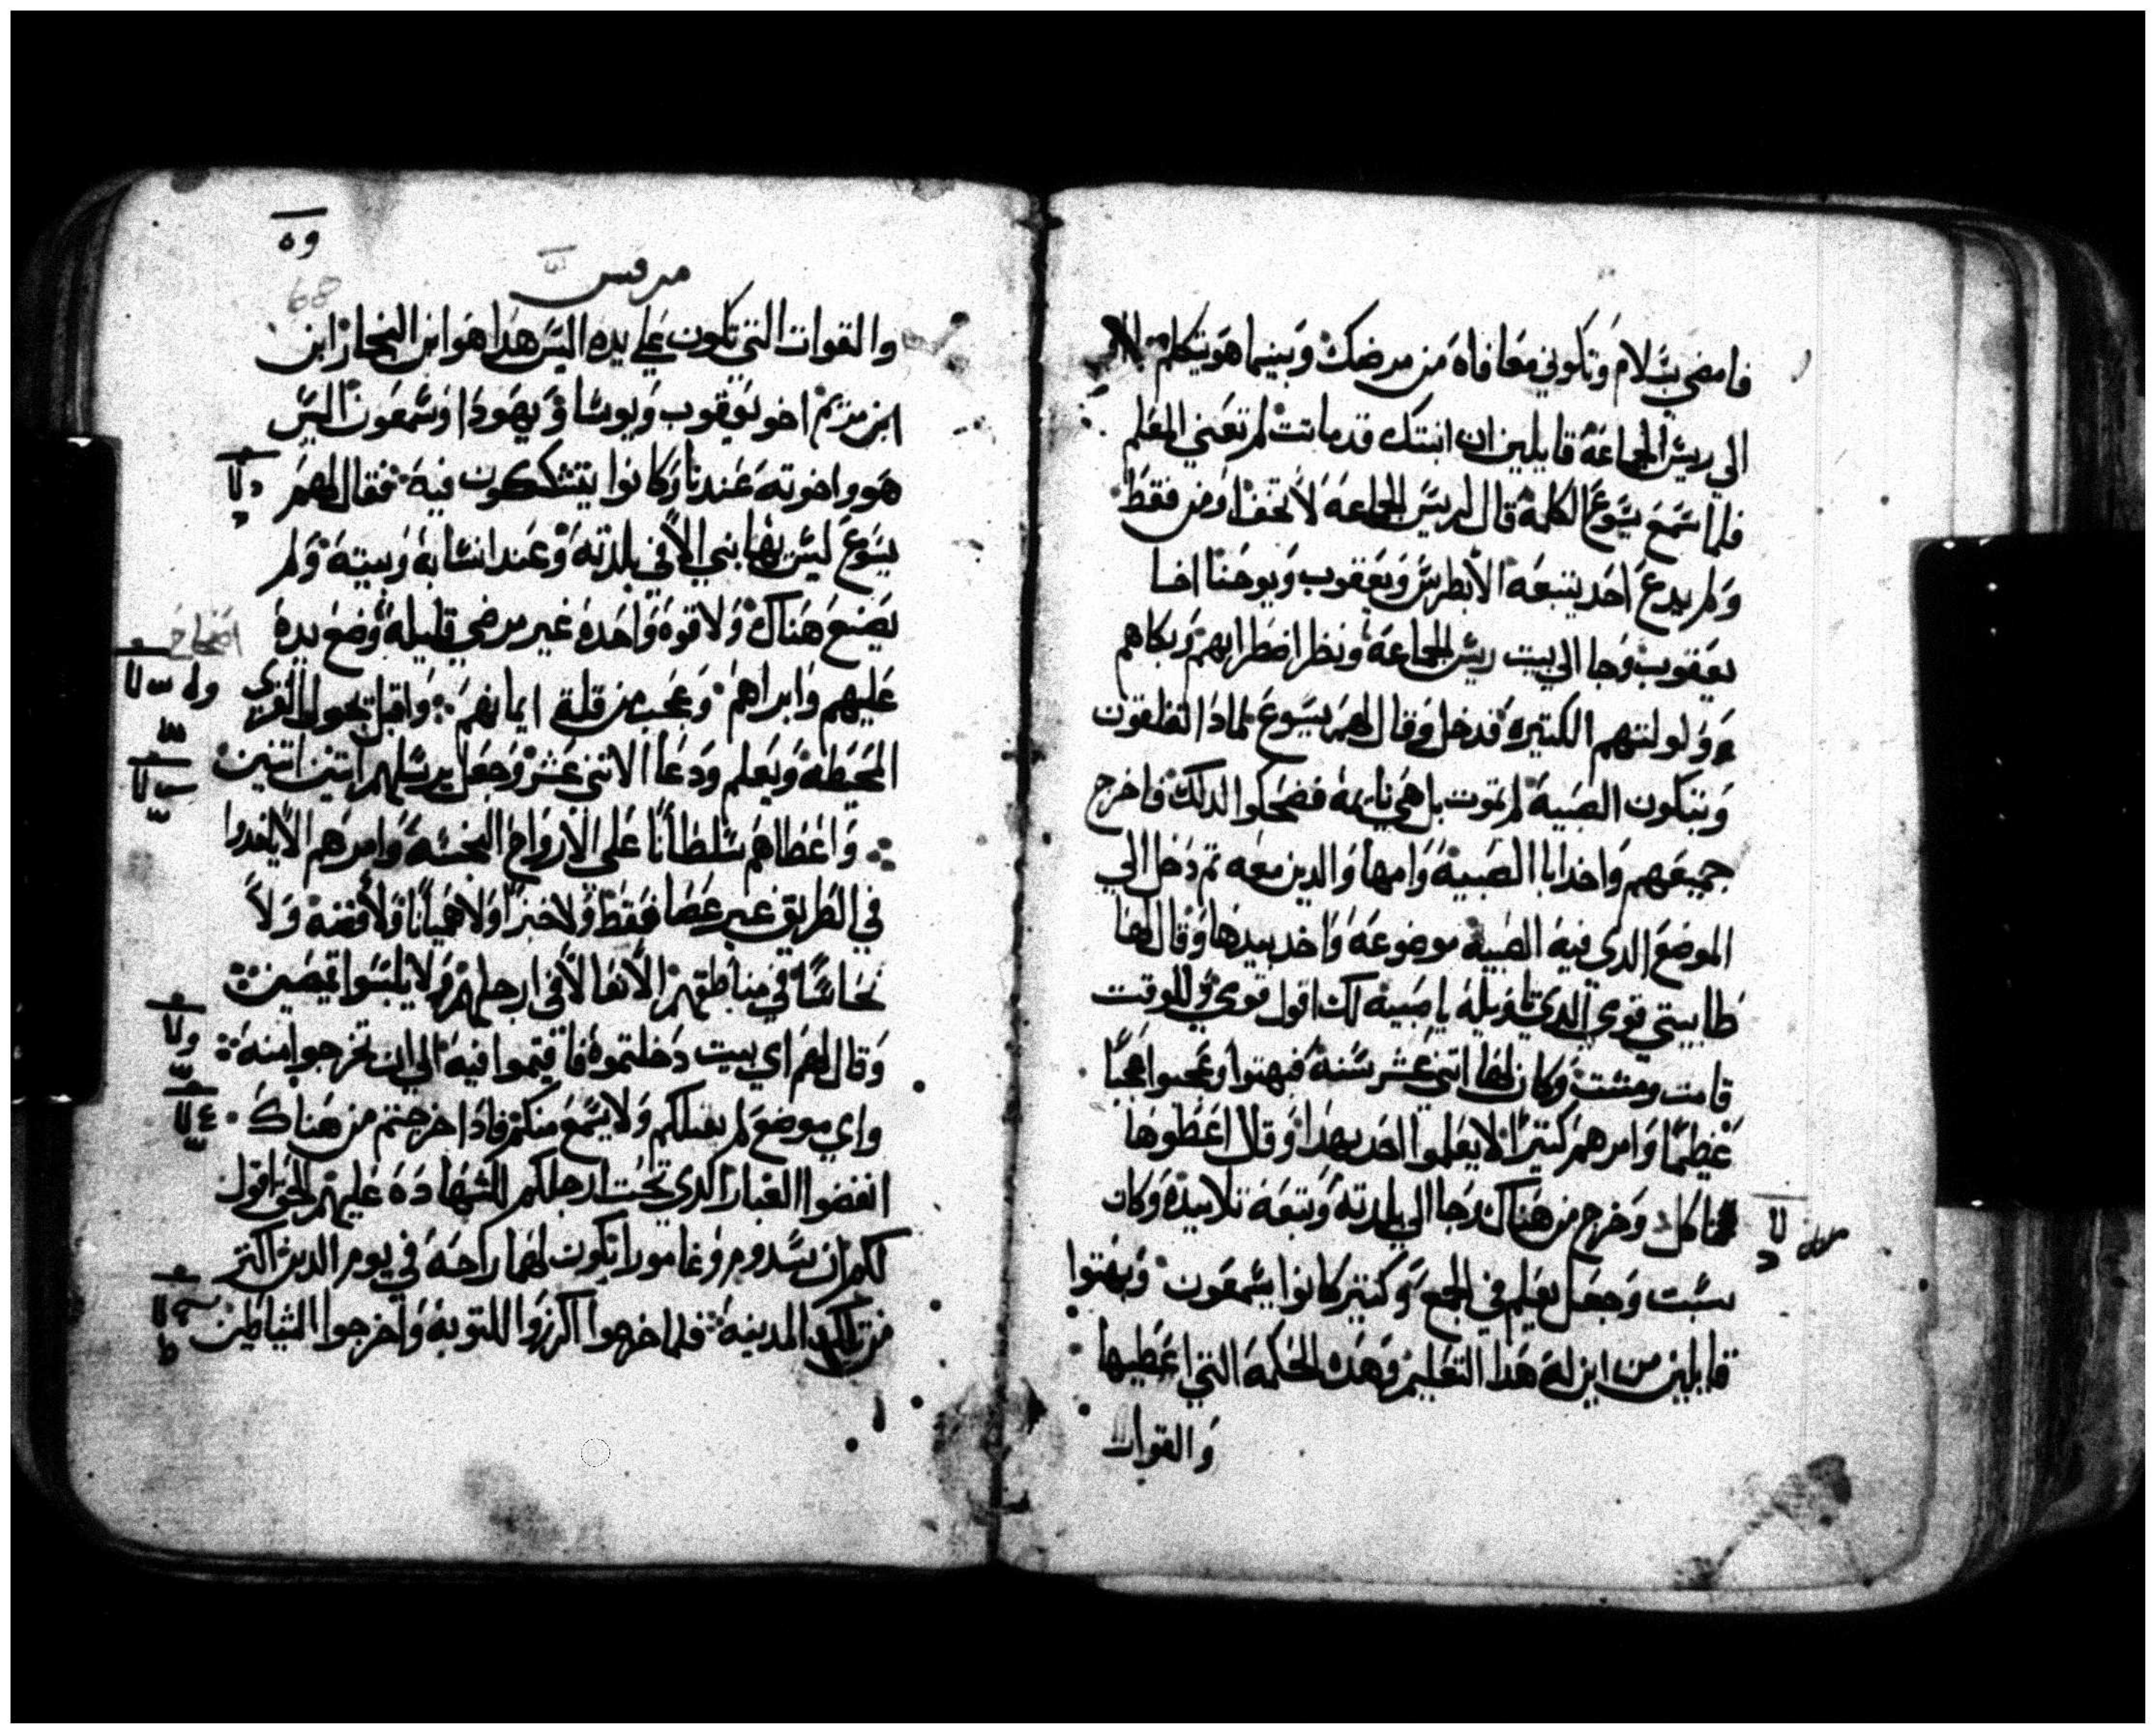 فامضي بسلام وتكوني معافاه من مرضك وبينما هو يتكلم
الي ريس الجماعة قايلين ان ابنتك قد ماتت لم تعني المعلم
فلما سمع يسوع الكلمة قال لريس الجماعه لا تخف اومن فقط
ولم يدع احد يتبعه الا بطرس ويعقوب ويوحنا اخا
يعقوب وجا الي بيت ريس الجماعة ونظر اضطرابهم وبكاهم
وولولتهم الكتيره فدخل وقال لهم يسوع لمادا تقلقون
وتبكون الصبية لم تموت بل هي نايمة فضحكوا لدلك فاخرج
جميعهم واخد ابا الصبية وامها والدين معه تم دخل الي
الموضع الدي فيه الصبية موضوعه واخد بيدها وقال لها
طابيتي قومي الدي تاويله يا صبية لك اقول قومي وللوقت
قامت ومشت وكان لها اتني عشر سنة فبهتوا وعجبوا عجبا
عظيما وامرهم كتيرا لا يعلموا احد بهدا وقال اعطوها
تاكل وخرج من هناك وجا الي بلدته وتبعه تلاميده وكان
سبت وجعل يعلم في المجمع وكتير كانوا يسمعون وبهتوا
قايلين من اين له هدا التعليم وهده الحكمة التي اعطيها
والقوات
وه
68
مرقس
والقوات التي تكون علي يديه اليس هدا هو ابن النجار ابن
ابن مريم اخو يعقوب ويوسا ويهودا وسمعون اليس
هو واخوته عندنا وكانوا يتشككون فيه فقال لهم
يسوع ليس يهان نبي الا في بلدته وعند انسابه وبيته ولم
يصنع هناك ولا قوه واحده غير مرضي قليله وضع يده
عليهم وابراهم وعجب من قلة ايمانهم واقبل يجول القري
المحيطه ويعلم ودعا الاتني عشر وجعل يرسلهم اتنين اتنين
واعطاهم سلطانا علي الارواح النجسه وامرهم الا ياخدوا
في الطريق غير عصا فقط ولا خبزا ولا هميانا ولا فضه ولا
نحاسا في مناطقهم الا نعالا في ارجلهم ولا يلبسوا قميصين
وقال لهم اي بيت دخلتموه فاقيموا فيه الي ان تخرجوا منه
واي موضع لم يقبلكم ولا يسمع منكم فادا خرجتم من هناك
انفضوا الغبار الدي تحت ارجلكم للشهاده عليهم الحق اقول
لكم ان سدوم وغامورا تكون لهما راحة في يوم الدين اكتر
من تلك المدينه فلما خرجوا اكرزوا للتوبه واخرجوا الشياطين